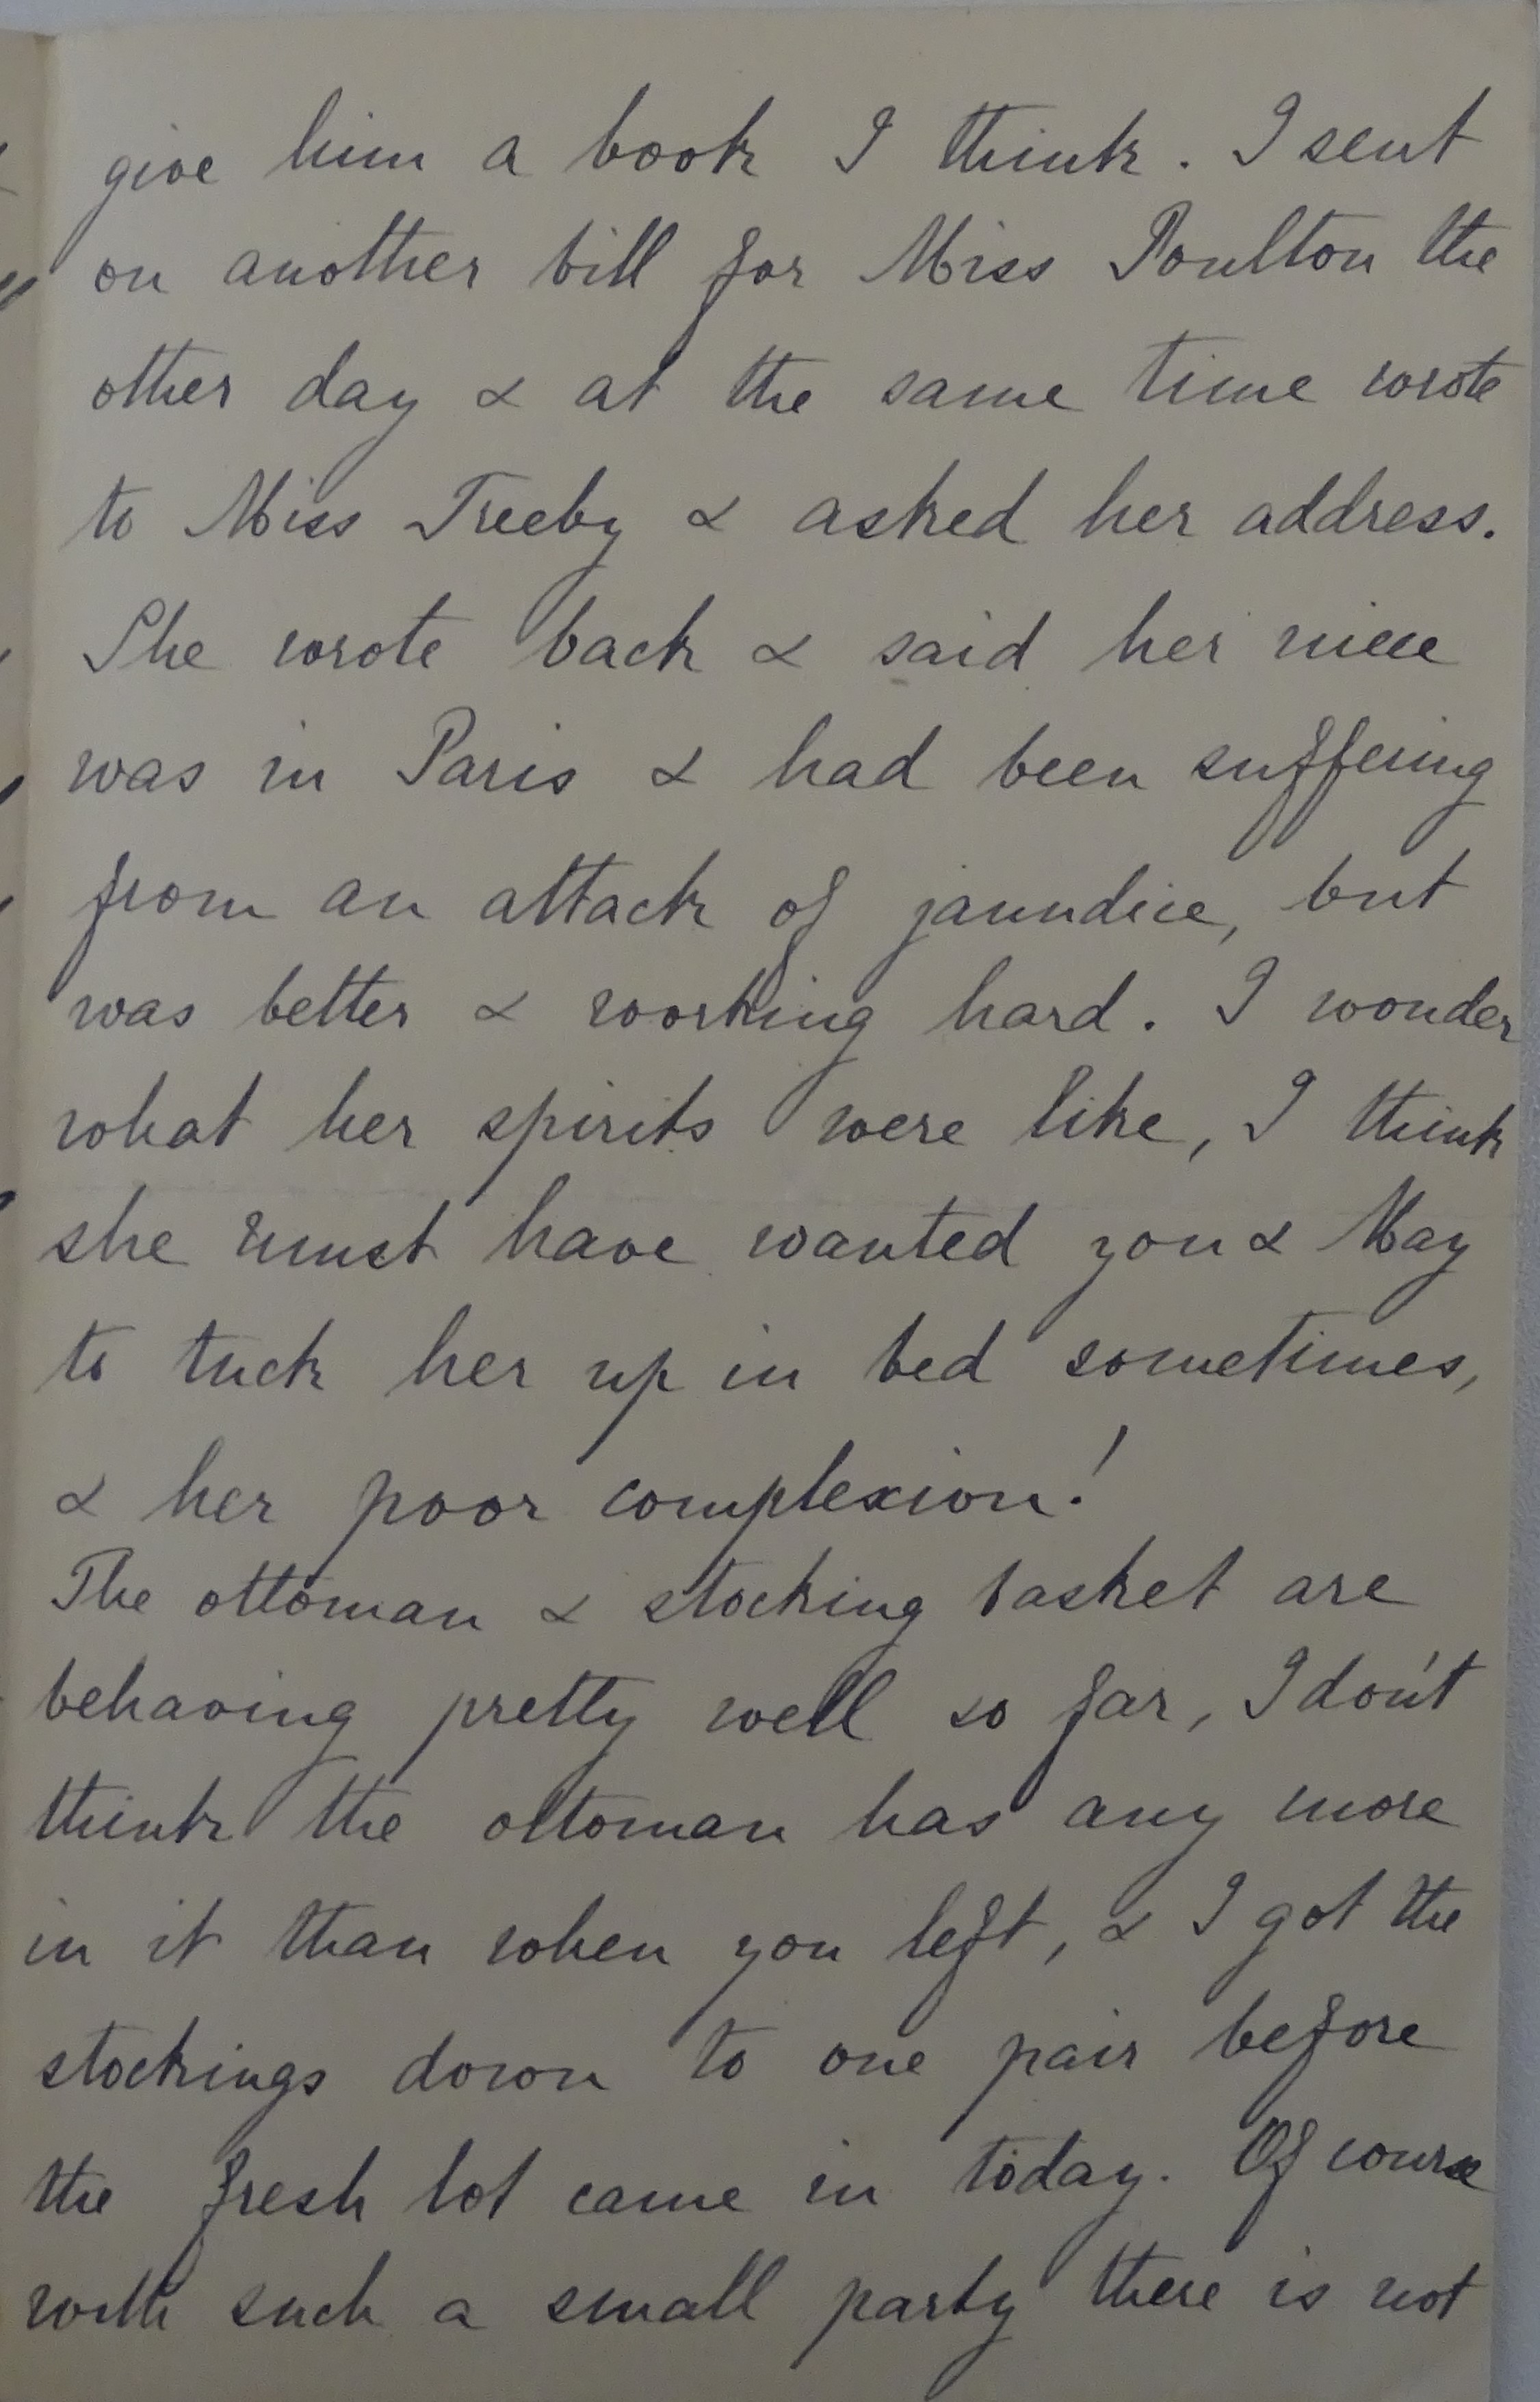 give him a book I think. I sent
on another bill for Miss Poulton the
other day & at the same time wrote
to Miss Treeby & asked her address.
She wrote back & said her niece
was in Paris & had been suffering
from an attack of jaundice, but
was better & working hard. I wonder
what her spirits were like, I think
she must have wanted you & May
to tuck her up in bed sometimes,
& her poor complexion!
The ottoman & stocking basket are
behaving pretty well so far, I don't
think the ottoman has any more
in it than when you left, & I got the
stockings down to one pair before
the fresh lot came in today. Of course
with such a small party there is not